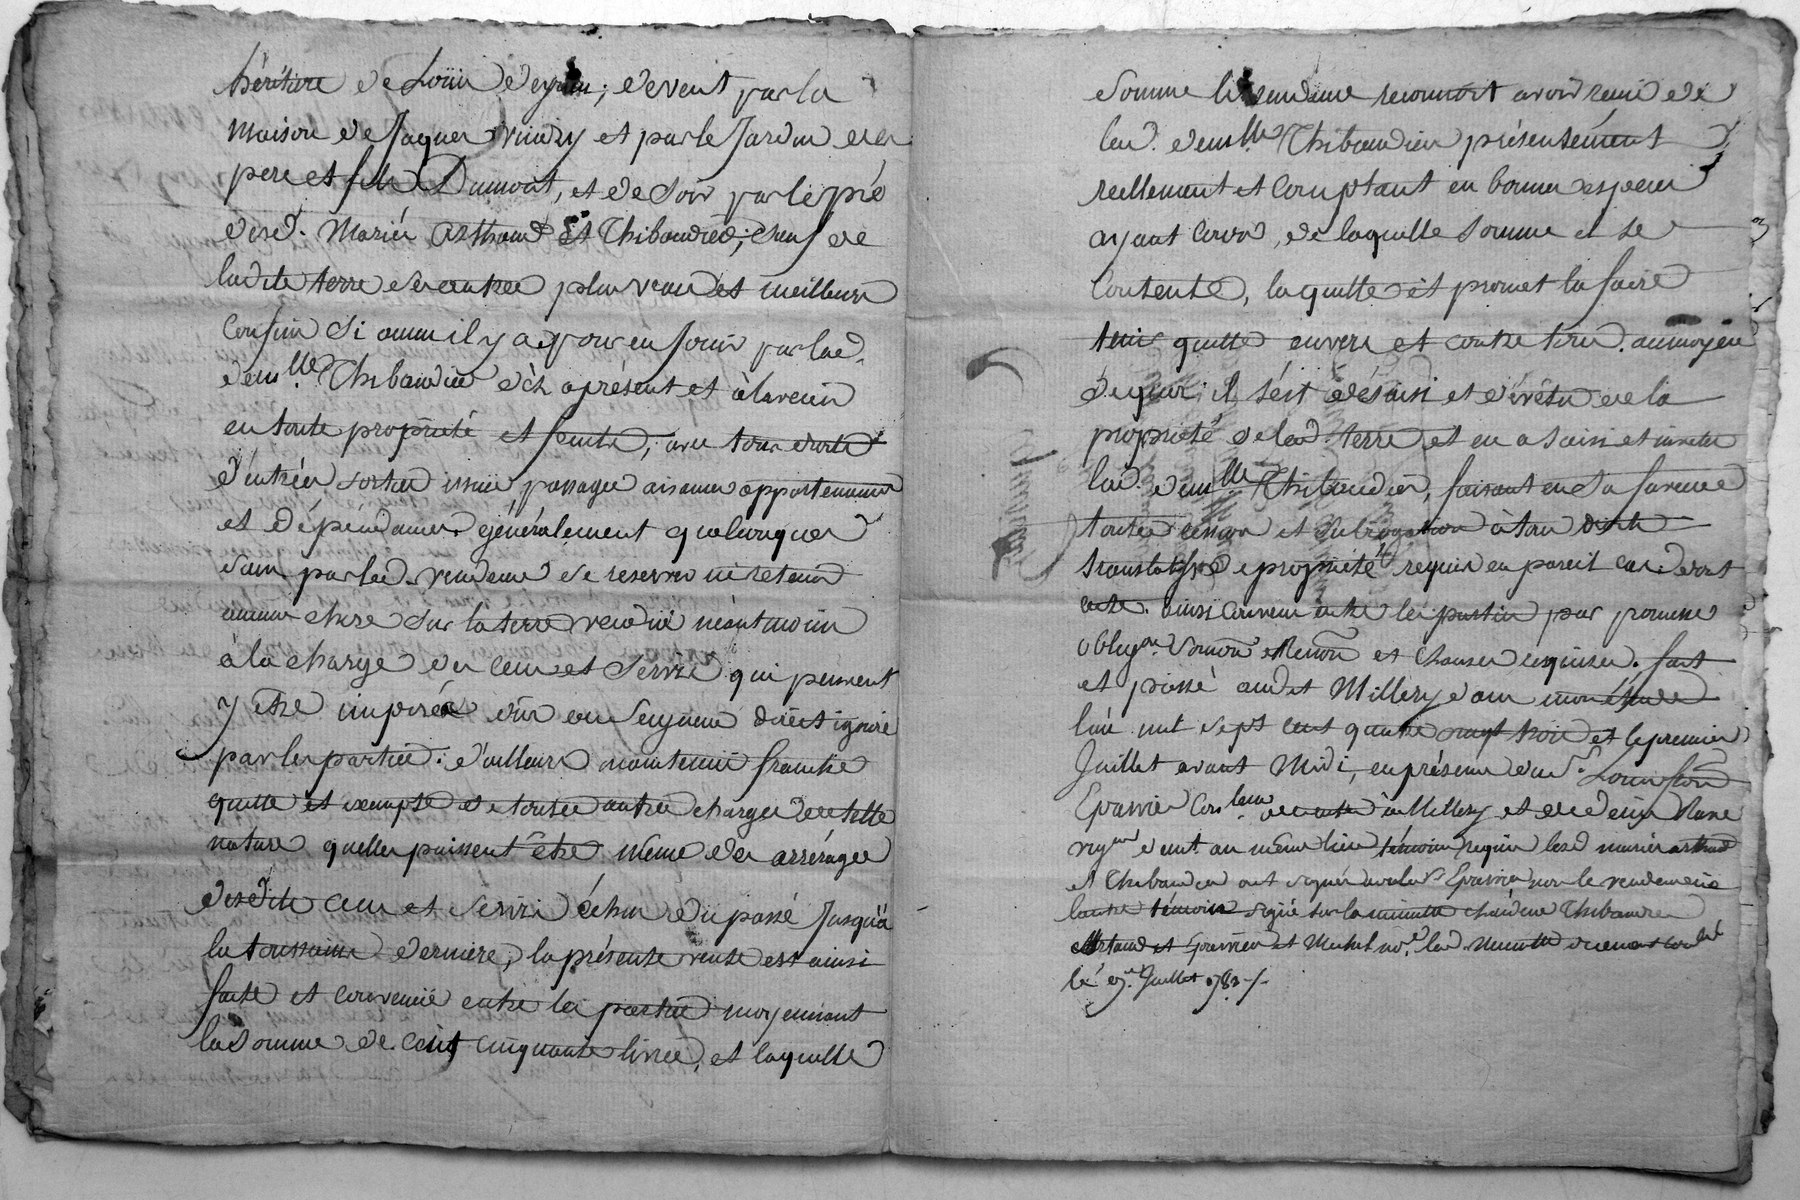 héritiere de Loüis Deyrieu; devent par la
maison de Jaques Vindry et par le Jardin des
pere et fils Dumont, et de Soir par le pré
desd. Mariés Arthaud Et Thibaudier; Sauf de
ladite terre Ses autres plus vrais et meilleurs
Confins Si aucuns il y a, pour en Jouir par lad.
dem.lle Thibaudier dès aprésent et à lavenir
en toute propriété et fruits, avec tous droits
d'entrées Sorties issües passages aisances appartenances
et dépendances généralement quelconques
Sans par led. vendeur Se reserver ni retenir
aucune chose Sur la terre vendüe néantmoins
à la charge des Cens et Servis qui peuvent
y être imposés dûs au Seigneur direct ignoré
par les parties: d'ailleurs maintenüe franche
quitte et exempte de toutes autres charges de telle
nature quelles puissent être même des arrérages
desdits Cens et Servis échus du passé Jusqu'à
la toussaint derniere, la présente vente est ainsi
faite et convenüe entre les parties moyennant
la Somme de Cent Cinquante livres, et laquelle
Somme le vendeur reconnoit avoir reçüe de
lad. dem.lle Thibaudier présentement
reellement et Comptant en bonnes especes
ayant Cours, de laquelle Somme il se
Contente, la quitte et promet la faire
tenir quitte envers et contre tous. aumoyen
de quoi, il s'est désaisi et dévêtu de la
propriété de lad. terre et en a Saisi et investu
lad. dem.lle Thibaudier, faisant en Sa faveur
toutes cession et Subrogation à tous droits
translatifs de propriété requis en pareil cas. dont
acte. ainsi convenu entre les parties par promesse
obligon. Soumon. Renon. et Clauses requises. fait
et passé audit Millery dans mon étude
l'an mil Sept cent quatre vingt trois et le premier
Juillet avant Midi, en présence du S.r Louis
demeurant à Millery et de
vigon demt. au même lieu témoins requis lesd mariés arthaud
et Thibaudier ont Signés avec led. S.r non le vendeur ni
lautre témoin Signé Sur la minute
Artaud et et Michel no.re lad. minute
le Juillet 1783 /.